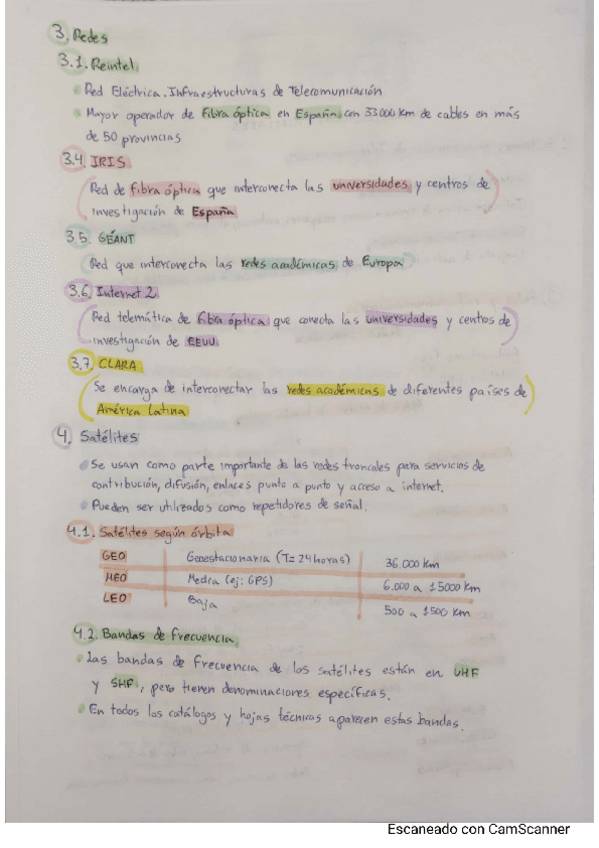 3. Redes
3.1. Reintel
Red Eléctrica. Infraestructuras de Telecomunicación
Mayor operador de fibra óptica en España con 33000 Km de cables en más
de 50 provincias
3.4. IRIS
Red de fibra óptica que interconecta las universidades y centros de
investigación de España
3.5. GÉANT
Red que interconecta las redes académicas de Europa
3.6. Internet 2
Red telemática de fibra óptica que conecta las universidades y centros de
investigación de EEUU.
3.7. CLARA
Se encarga de interconectar las redes académicas de diferentes países de
América Latina
4. Satélites
Se usan como parte importante de las redes troncales para servicios de
contribución, difusión, enlaces punto a punto y acceso a internet.
Pueden ser utilizados como repetidores de señal.
4.1. Satélites según órbita
GEO Geoestacionaria (T=24horas) 36.000 Km
MEO Media (ej: GPS) 6.000 a 15000 Km
LEO Baja 500 a 1500 Km
4.2. Bandas de frecuencia
Las bandas de frecuencia de los satélites están en UHF
y SHF, pero tienen denominaciones específicas.
En todos los catálogos y hojas técnicas aparecen estas bandas.
Escaneado con CamScanner